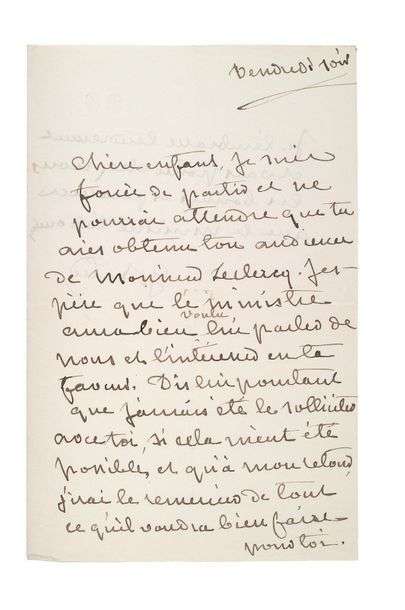 Vendredi soir
Chère enfant, Je suis
forcée de partir et ne
pourrai attendre que tu
aies obtenu ton audience
de Monsieur Leclercq. J'es-
père que le ministre
aura bien voulu lui parler de
nous et l'intéresser en ta
faveur. Dis lui pourtant
que j'aurais été le solliciter
avec toi, si cela m'eut été
possible, et qu'à mon retour,
j'irai le remercier de tout
ce qu'il voudra bien faire
pour toi.